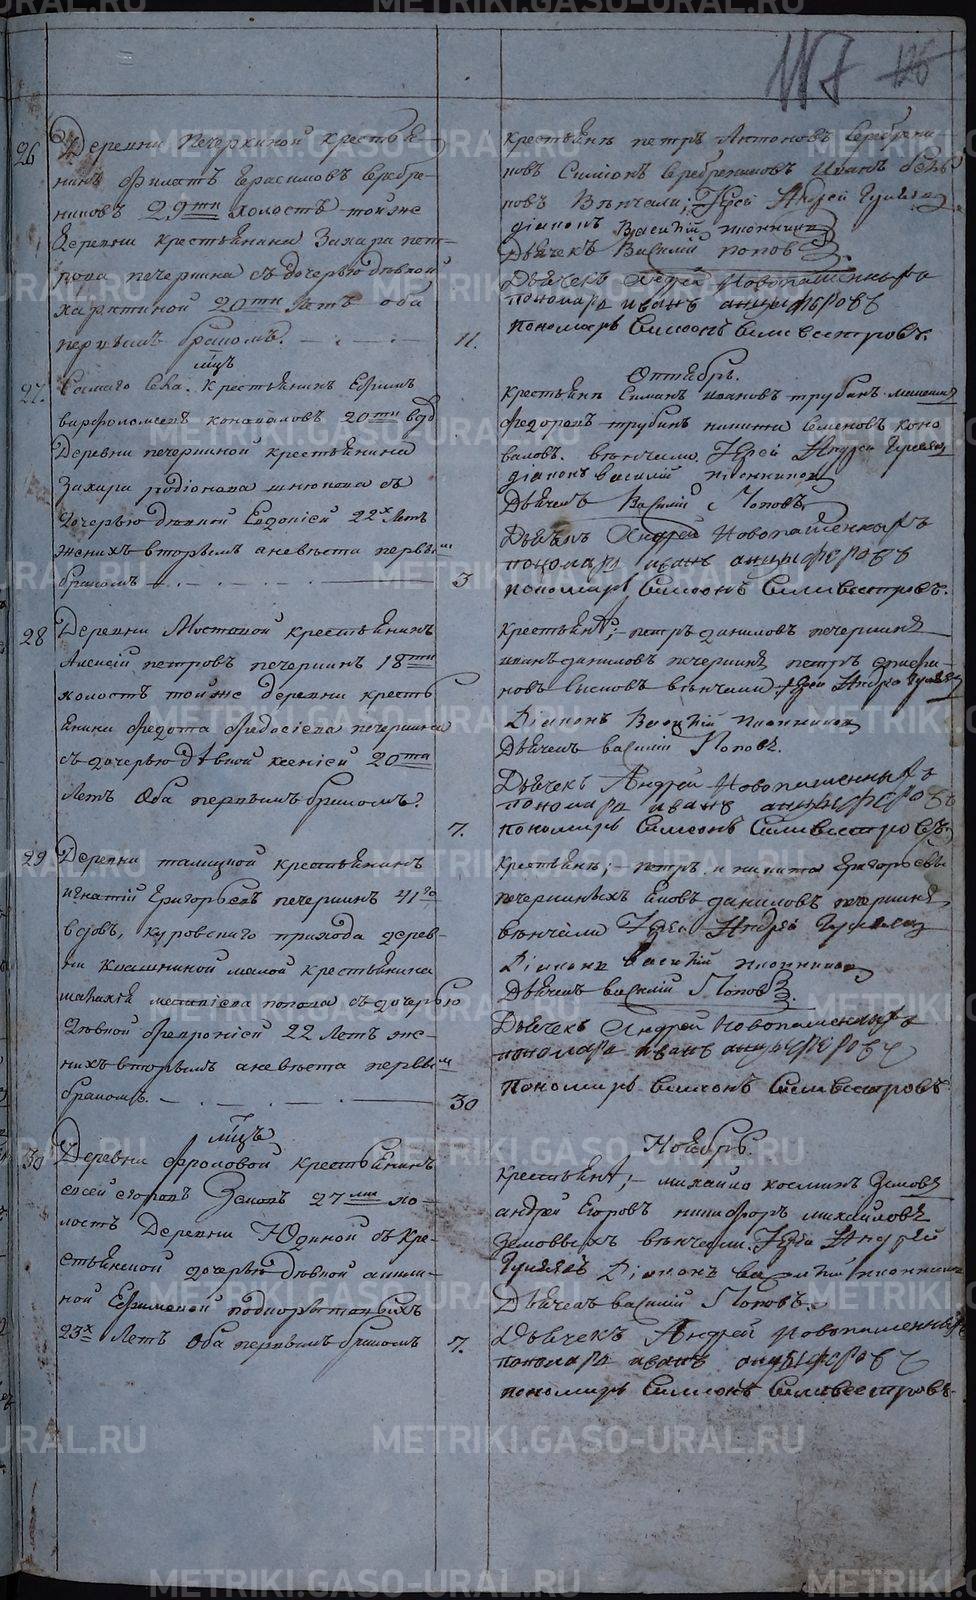 117
26
Деревни Печеркиной крестья
нинъ Филатъ Герасимовъ Серебре
никовъ 29ти холостъ тойже
деревни крестьянина Захара пет
рова печеркина съ дочерью дѣвкой
20ти Лѣтъ оба
первымъ бракомъ.
11.
крестьяне петръ Антоновъ Серебрени
ковъ Симионъ Серебрениковъ Иванъ
ковъ Вѣнчали; Іерей Андрей
діаконъ Василій
Дьячекъ Василий поповъ
Дьячекъ Андрей Новопашенныхъ
пономарь иванъ анцыферовъ
пономарь Симеонъ Силивестровъ.
27.
Самаго Села. крестьянинъ Ефимъ
варфоломеевъ коноваловъ 20ти вдо
вецъ
Деревни печеркиной крестьянина
Захара родіонова съ
дочерью дѣвкой Евдокіей 22х Лѣтъ
женихъ вторымъ а невѣста первымъ
бракомъ
3
Октябрь.
крестьяне Симанъ ивановъ трубинъ
федоровъ трубинъ никита Семеновъ коно
валовъ. вѣнчали. Іерей Андрей
діаконъ василій
Дьячекъ Василий Поповъ
Дьячекъ Андрей Новопашенныхъ
пономарь иванъ анцыферовъ
пономарь Симеонъ Силивестровъ.
28
Деревни Мостовой крестьянинъ
Алексѣй петровъ печеркинъ 18ти
холостъ тойже деревни кресть
янина Федота Федосѣева печеркина
съ дочерью дѣвкой ксеніей 20ти
Лѣтъ Оба первымъ бракомъ.
7.
Крестьяне; петръ даниловъ печеркинъ
иванъ даниловъ печеркинъ петръ
новъ вѣнчали; Іерей Андрей
Діаконъ Василій
Дьячекъ василій Поповъ.
Дьячекъ Андрей Новопашенныхъ
пономарь иванъ анцыферовъ
пономарь Симеонъ Силивестровъ.
29
Деревни талицкой крестьянинъ
игнатій Григорьевъ печеркинъ 41го
вдовъ, куровскаго прихода дерев
ни малой крестьянина
попова съ дочерью
дѣвкой февроніей 22 Лѣтъ же
нихъ вторымъ а невѣста первымъ
бракомъ.
30
Крестьяне; петръ и никита Григорьевы
печеркиныхъ даниловъ печеркинъ,
вѣнчали Іерей Андрей
Діаконъ василій
Дьячекъ василий Поповъ.
Дьячекъ Андрей Новопашенныхъ
пономарь иванъ анцыферовъ
пономарь Симеонъ Силивестровъ.
30
Деревни фроловой крестьянинъ
елисей егоровъ Земовъ 27ми хо
лостъ Деревни Юдиной съ кре
стьянской дочерью дѣвкой
ной Ефимовой
23х Лѣтъ Оба первымъ бракомъ
7.
Ноябрь.
крестьяне; михайло косминъ Земовъ
андрей Егоровъ никифоръ михайловъ
Земовыхъ вѣнчали. Іерей Андрей
Діаконъ василій
Дьячекъ василий Поповъ.
Дьячекъ Андрей Новопашенныхъ
пономарь иванъ анцыферовъ
пономарь Симеонъ Силивестровъ.
METRIKI.GASO-URAL.RU